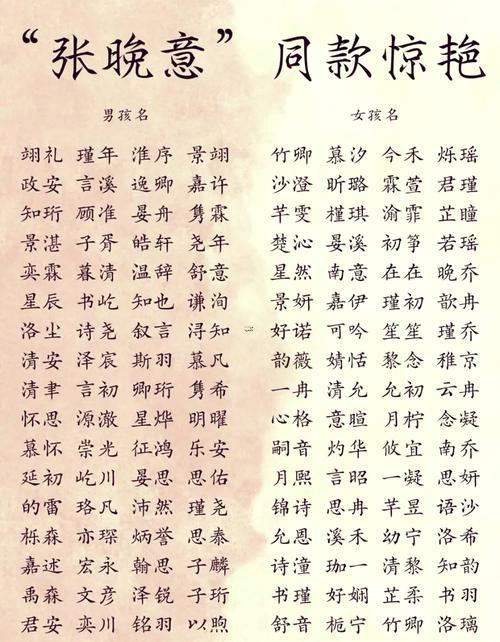 “张晚意” 同款惊艳
男孩名 女孩名
翊礼 瑾年 淮序 景翊 竹卿 慕汐 今禾 烁瑶
政安 言溪 逸卿 嘉许 沙澄 昕璐 霖萱 君瑾
知珩 顾准 晏舟 隽霖 芊雯 槿琪 渝霏 芷瞳
景湛 子胥 皓轩 尧年 楚沁 晏溪 初筝 若瑶
奕霖 暮清 温辞 舒意 星然 南意 在在 晚乔
星辰 书屹 知也 谦洵 景妍 嘉伊 瑾初 歆冉
洛尘 诗尧 叙言 浔知 好诺 可吟 笙笙 瑾乔
清安 泽宸 斯羽 慕凡 韵薇 婧恬 黎念 稚京
清聿 言初 卿珩 隽希 一冉 清允 允初 云冉
怀思 源澈 星烨 明曜 心格 意暄 月柠 念凝
慕怀 崇光 征鸿 乐安 嗣音 灼华 攸宜 南乔
延初 屹川 晏思 思佑 月熙 言昭 一凝 思妍
的雷 珞凡 沛然 瑾尧 锦诗 思冉 芊昱 语沙
栎森 亦琛 炳誉 思泰 允恩 溪禾 幼宁 洛希
嘉述 宏永 翰思 子麟 诗潼 珈一 清黎 知韵
禹森 文彦 泽锐 子珩 书瑾 好娴 芷柔 书羽
君安 奕川 铭羽 以煦 舒音 栀宁 竹卿 洛璃